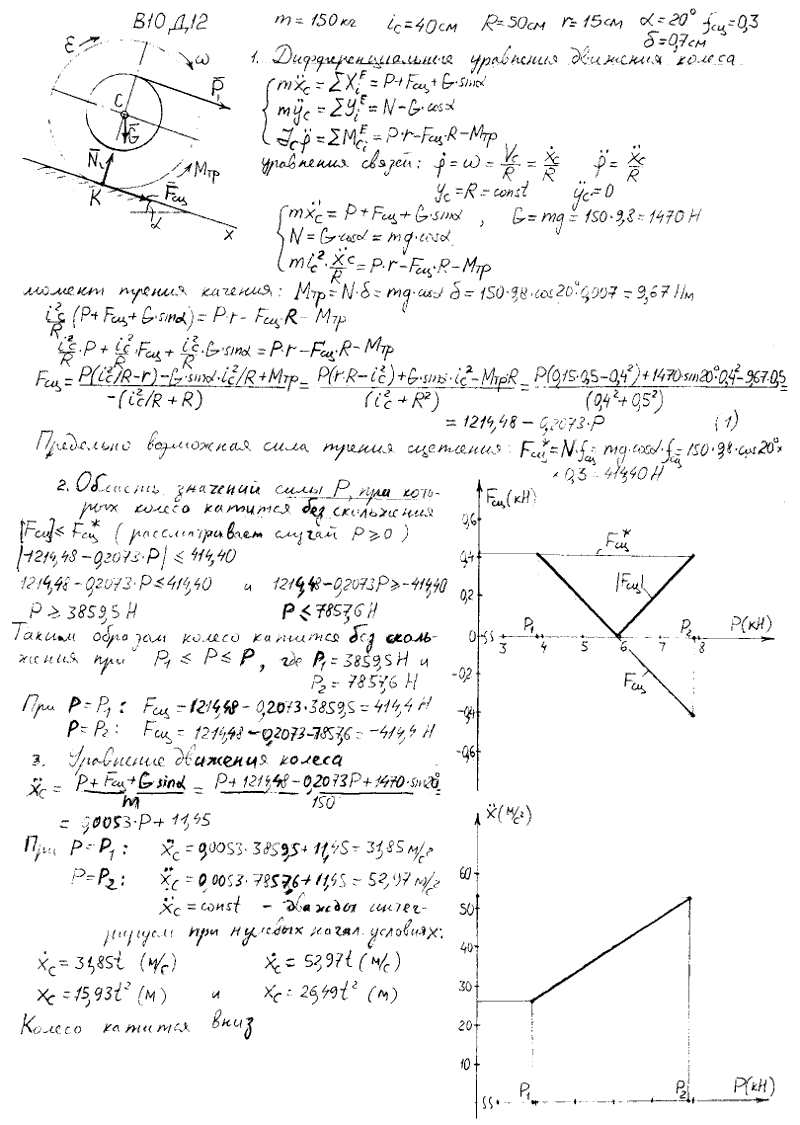 В10 Д12 m = 150кг i_C = 40см R = 50см r = 15см α = 20° f_сц = 0,3
δ = 0,7см
1. Дифференциальные уравнения движения колеса
mẍ_C = ΣX_i^E = P + F_сц + G·sinα
mÿ_C = ΣY_i^E = N − G·cosα
J_C φ̈ = ΣM_Ci^E = P·r − F_сц·R − M_тр
уравнения связей: φ̇ = ω = V_C/R = ẋ_C/R φ̈ = ẍ_C/R
y_C = R = const ÿ_C = 0
mẍ_C = P + F_сц + G·sinα , G = mg = 150·9,8 = 1470 Н
N = G·cosα = mg·cosα
m i_C²·ẍ_C/R = P·r − F_сц·R − M_тр
ε ω P̄₁ C Ḡ N̄₁ M_тр K F̄_сц α x
момент трения качения: M_тр = N·δ = mg·cosα δ = 150·9,8·cos20°·0,007 = 9,67 Нм
i_C²/R (P + F_сц + G·sinα) = P·r − F_сц·R − M_тр
i_C²/R·P + i_C²/R·F_сц + i_C²/R·G·sinα = P·r − F_сц·R − M_тр
F_сц = P(i_C²/R − r) − G·sinα·i_C²/R + M_тр / −(i_C²/R + R) = P(r·R − i_C²) + G·sinα·i_C² − M_тр·R / (i_C² + R²) = P(0,15·0,5 − 0,4²) + 1470·sin20°·0,4² − 9,67·0,5 / (0,4² + 0,5²) =
= 1214,48 − 0,2073·P (1)
Предельно возможная сила трения сцепления: F_сц* = N·f_сц = mg·cosα·f_сц = 150·9,8·cos20°×
× 0,3 = 414,40 Н
2. Область значений силы P, при кото-
рых колесо катится без скольжения
|F_сц| ≤ F_сц* (рассматривает случай P ≥ 0)
|1214,48 − 0,2073·P| ≤ 414,40
1214,48 − 0,2073·P ≤ 414,40 и 1214,48 − 0,2073P ≥ −414,40
P ≥ 3859,5 Н P ≤ 7857,6 Н
Таким образом колесо катится без сколь-
жения при P₁ ≤ P ≤ P, где P₁ = 3859,5 Н и
P₂ = 7857,6 Н
При P = P₁: F_сц = 1214,48 − 0,2073·3859,5 = 414,4 Н
P = P₂: F_сц = 1214,48 − 0,2073·7857,6 = −414,4 Н
3. Уравнение движения колеса
ẍ_C = P + F_сц + G sinα / m = P + 1214,48 − 0,2073P + 1470·sin20° / 150 =
= 0,0053·P + 11,45
При P = P₁: ẍ_C = 0,0053·3859,5 + 11,45 = 31,85 м/с²
P = P₂: ẍ_C = 0,0053·7857,6 + 11,45 = 52,97 м/с²
ẍ_C = const – дважды интег-
рируем при нулевых начал. условиях:
ẋ_C = 31,85t (м/с) ẋ_C = 52,97t (м/с)
x_C = 15,93t² (м) и x_C = 26,49t² (м)
Колесо катится вниз
F_сц (кН)
0,6
F_сц*
0,4
0,2 |F_сц|
0 SS P₁ 4 5 6 7 P₂ 8 P(кН)
-0,2 F_сц
-0,4
-0,6
ẍ (м/с²)
60
50
40
30
20
10
SS P₁ P₂ P(кН)